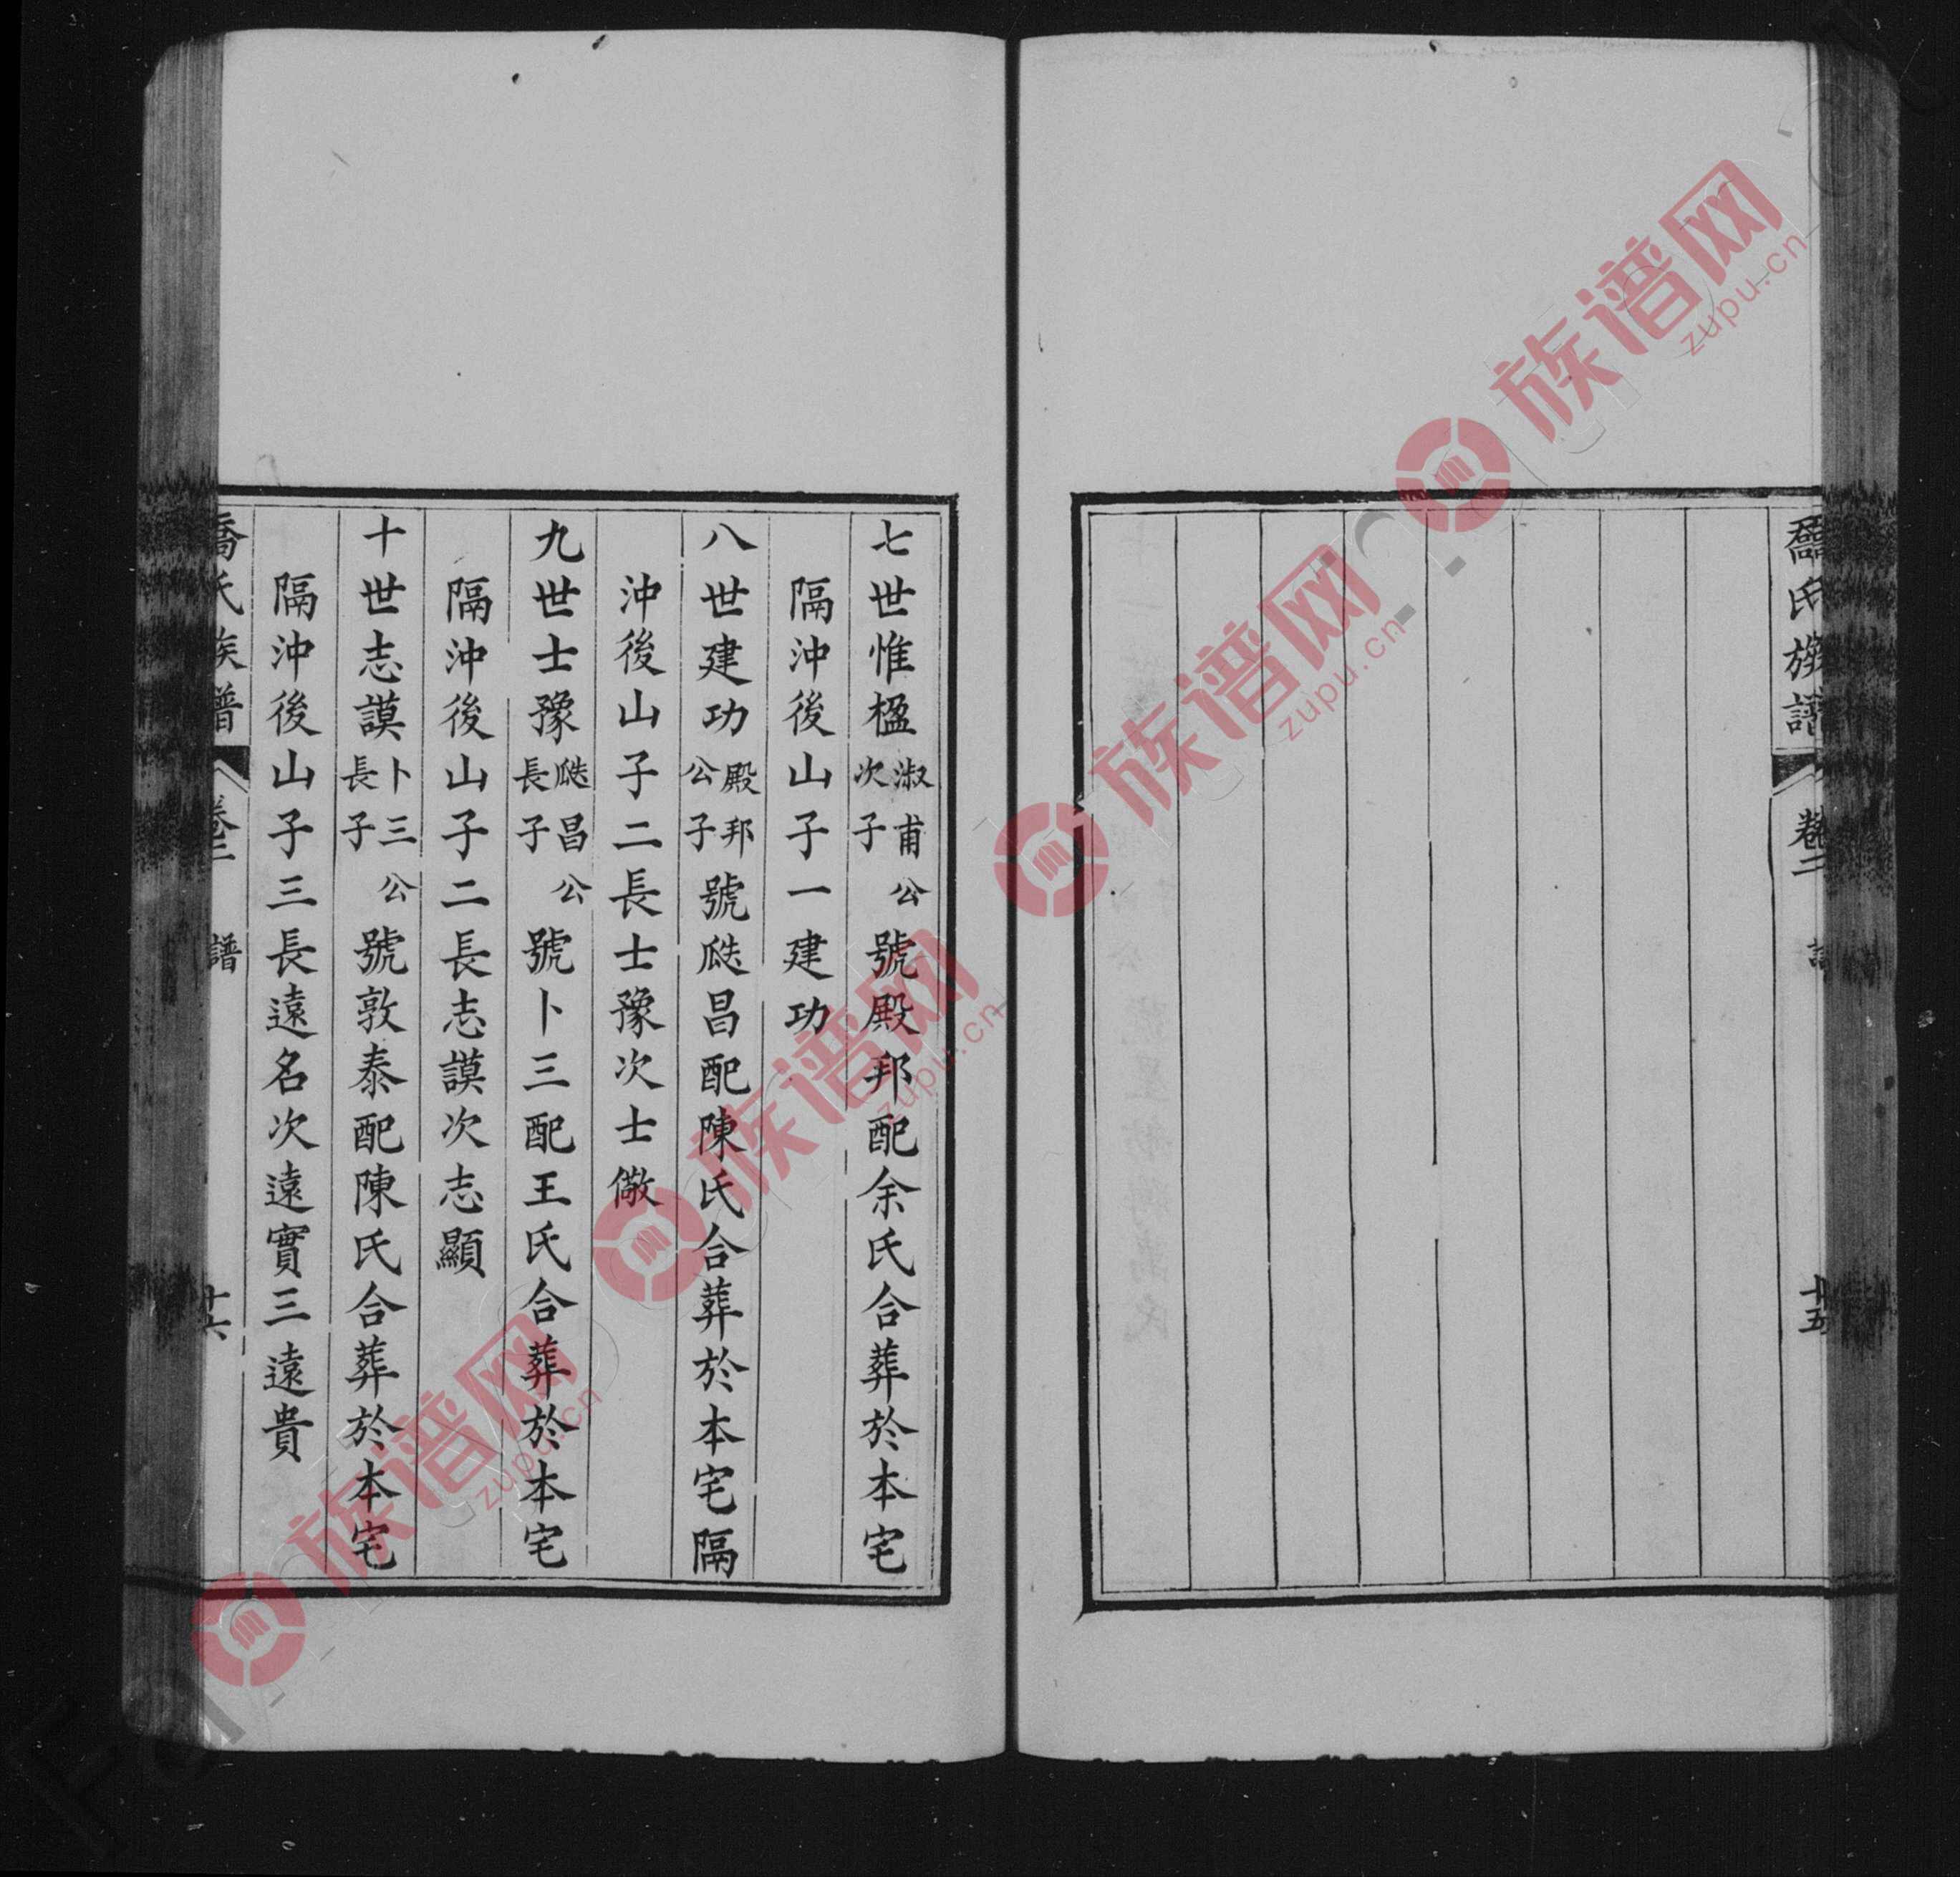 氏族譜
卷二
十五
七世惟楹淑甫公次子號殿邦配余氏合葬於本宅
隔沖後山子一建功
八世建功殿邦公子號瓞昌配陳氏合葬於本宅隔
沖後山子二長士豫次士儆
九世士豫瓞昌公長子號卜三配王氏合葬於本宅
隔沖後山子二長志謨次志顯
十世志謨卜三公長子號敦泰配陳氏合葬於本宅
隔沖後山子三長遠名次遠實三遠貴
氏族譜
卷二
譜
十六
族谱网
zupu.cn
族谱网
zupu.cn
族谱网
zupu.cn
族谱网
zupu.cn